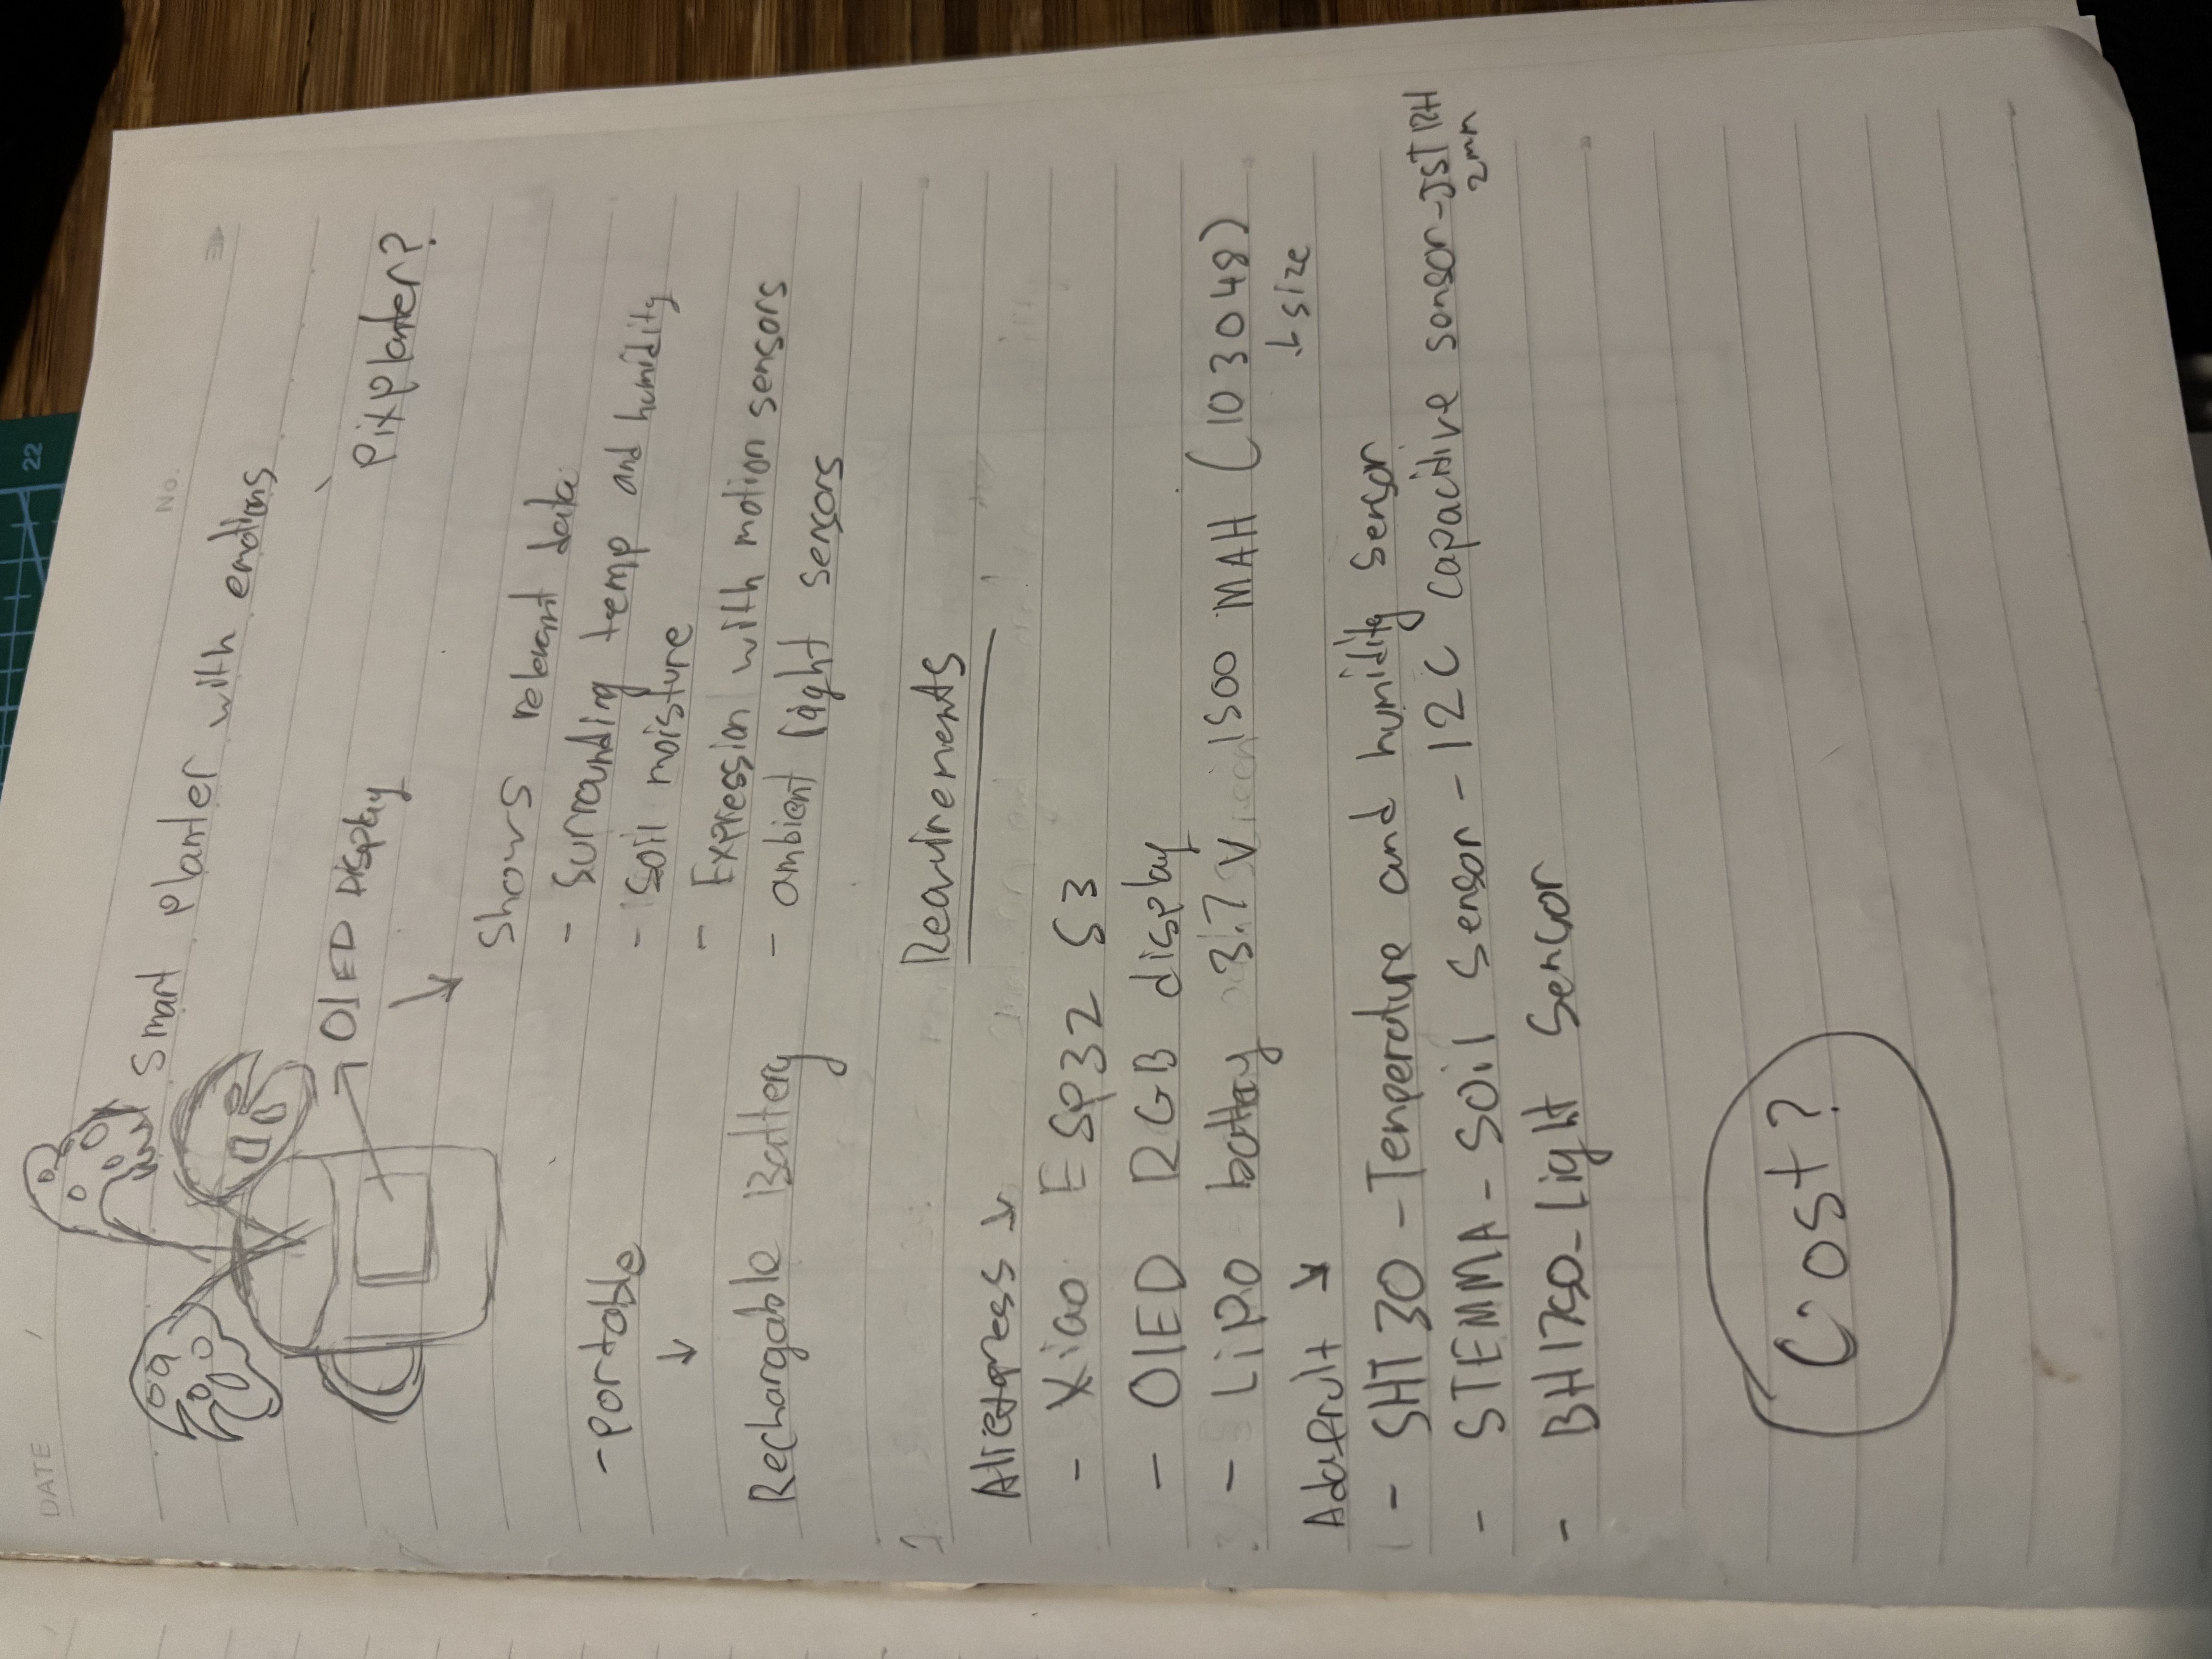 DATE
No.
Smart planter with emotions
OlED Display
Pixplanter?
Shows relevant data
- Surrounding temp and humidity
- Soil moisture
- Expression with motion sensors
- ambient light sensors
- Portable
Rechargable Battery
Reauirements
Aliexpress
- Xiao ESP32 S3
- OlED RGB display
- Lipo battay 3.7 V 1500 MAH (103048)
size
Adafruit
- SHT30 - Temperature and humidity sensor
- STEMMA - Soil Sensor - I2C capacitive sonsor - JST PH
2mm
- BH1750 - Light Sensor
Cost?
22